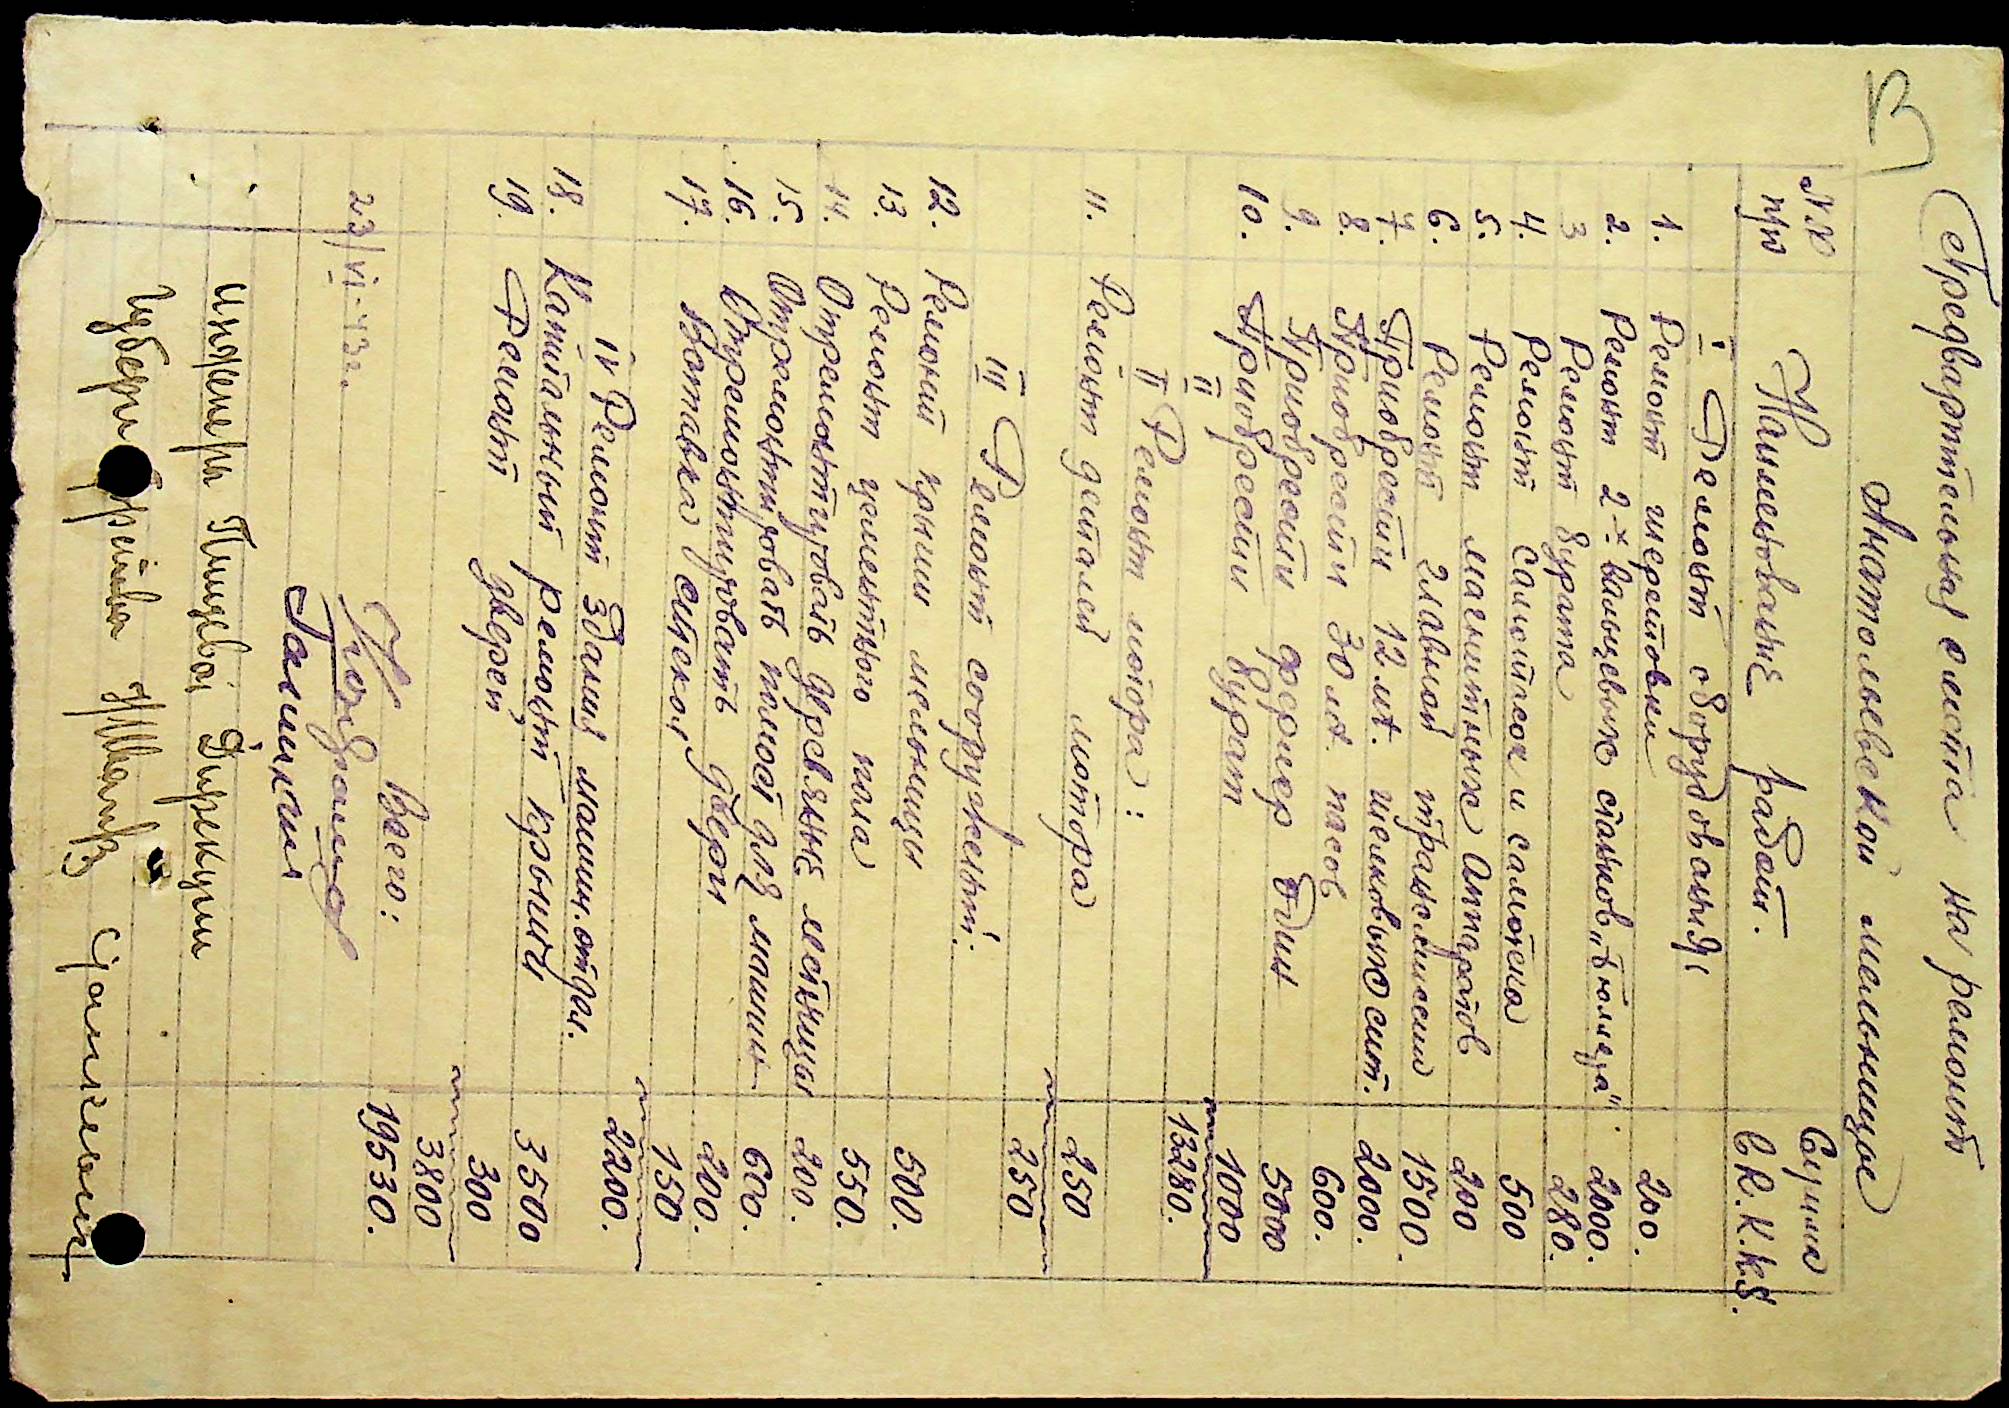 Предварительная смета на ремонт
Анатольевской мельницы
№№ п/п Наименование работ. Сумма R.K.K.S.
I Ремонт оборудования
1. Ремонт шеретовки 200.
2. Ремонт 2-х вальцевых станков „Бюллера“ 2000.
3 Ремонт бурата 280.
4. Ремонт самотаска и самотека 500
5. Ремонт магнитных аппаратов 200
6. Ремонт главной трансмиссии 1500.
7. Приобрести 12 мт. шелковых сит. 2000.
8. Приобрести 30 мт. пасов 600.
9. Приобрести фермер один 5000
10. Приобрести бурат 1000
II 13280.
II Ремонт мотора:
11. Ремонт деталей мотора 250
250
III Ремонт сооружений:
12. Ремонт крыши мельницы 500.
13. Ремонт цементного пола 550.
14. Отремонтировать деревяные лестницы 200.
15. Отремонтировать помост для машин 600.
16. Отремонтировать двери 200.
17. Вставка стекол 150
2200.
IV Ремонт здания машин. отдел.
18. Капитальный ремонт крыши 3500
19. Ремонт дверей 300
3800
Всего: 19530.
23/VI-43г.
Инженеры Пищевой Дирекции